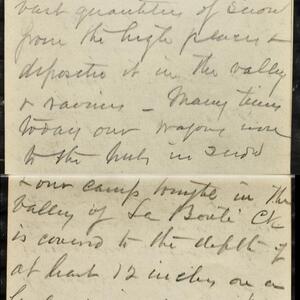 vast quantities of snow
from the high places &
deposited it in the valley
& ravines - Many times
today our wagons were
to the hubs in snow
& our camp tonight in the
valley of La Bonte Ck
is covered to the depth of
at least 12 inches on a